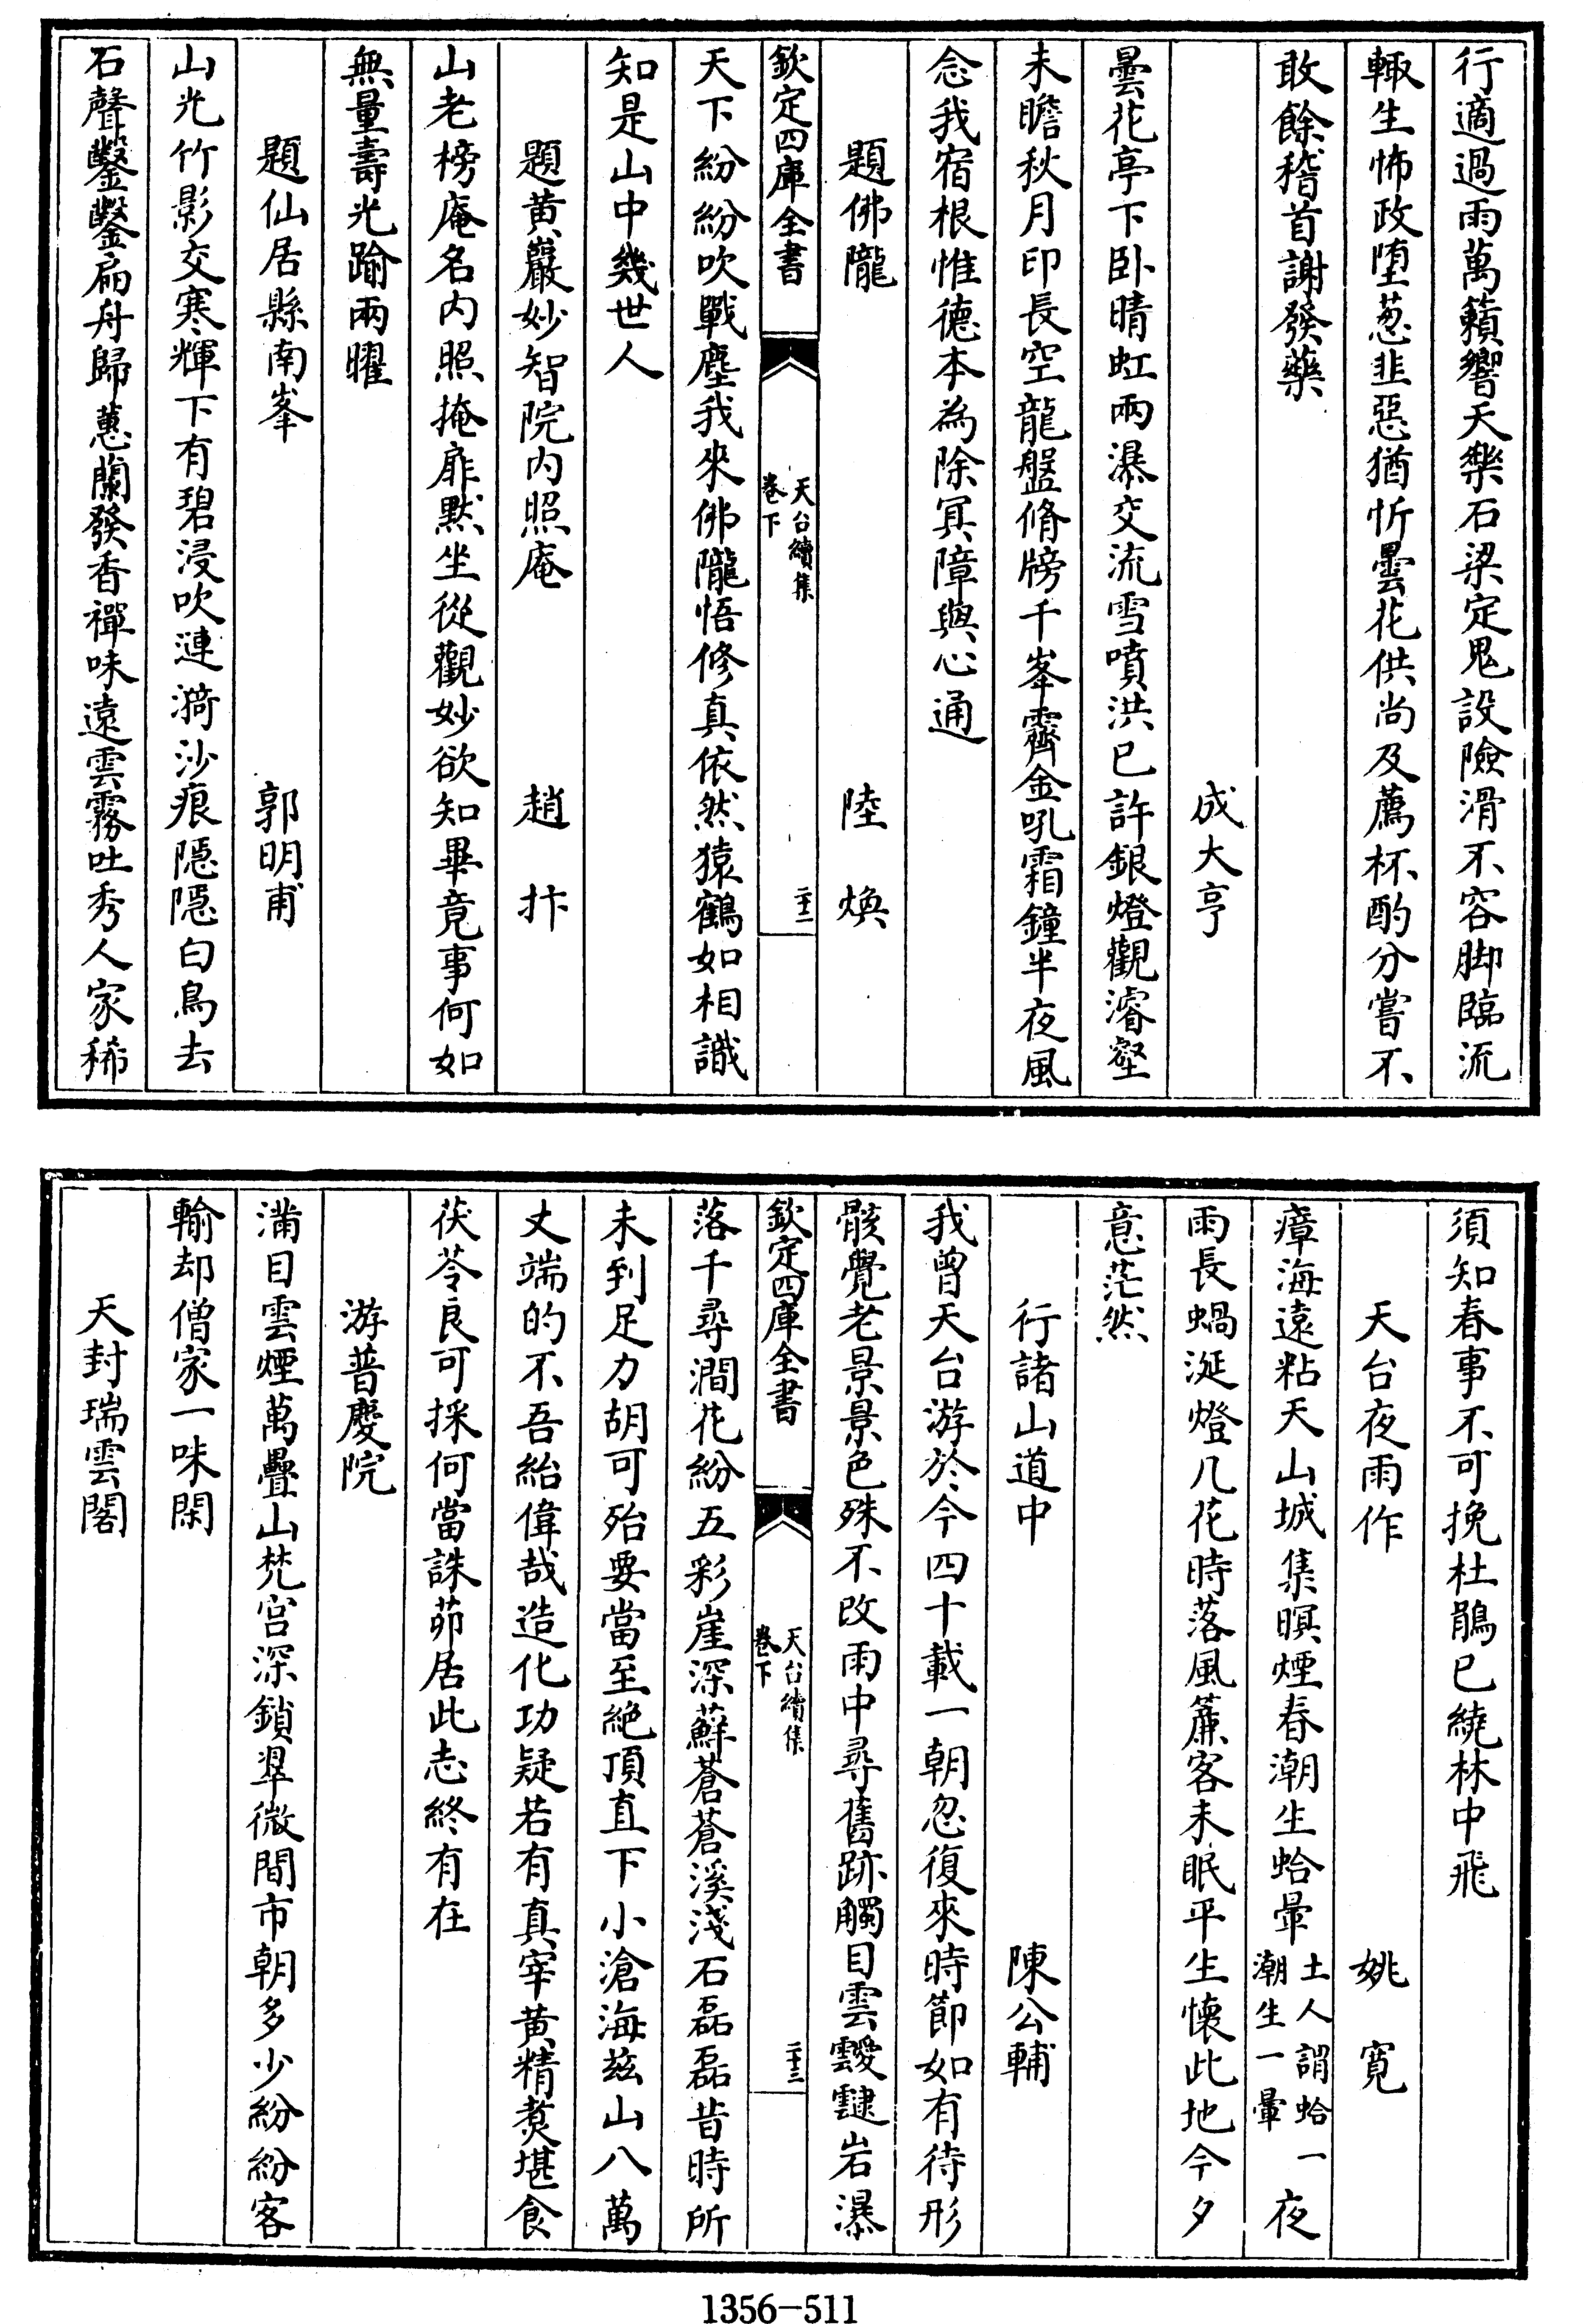 行適過雨萬籟響天樂石梁定鬼設險滑不容脚臨流
輙生怖政堕葱韭惡猶忻曇花供尚及薦杯酌分嘗不
敢餘稽首謝發藥
成大亨
曇花亭下卧晴虹兩瀑交流雪噴洪已許銀燈觀濬壑
未瞻秋月印長空龍盤脩牓千峯霽金吼霜鐘半夜風
念我宿根惟德本為除冥障與心通
題佛隴　陸煥
欽定四庫全書　天台續集卷下　二十二
天下紛紛吹戰塵我來佛隴悟修真依然猿鶴如相識
知是山中幾世人
題黃巖妙智院内照庵　趙抃
山老榜庵名内照掩扉默坐從觀妙欲知畢竟事何如
無量壽光踰兩曜
題仙居縣南峯　郭明甫
山光竹影交寒輝下有碧浸吹漣漪沙痕隠隠白鳥去
石聲鑿鑿扁舟歸蕙蘭發香禪味遠雲霧吐秀人家稀
須知春事不可挽杜鵑已繞林中飛
天台夜雨作　姚寛
瘴海遠粘天山城集暝煙春潮生蛤暈土人謂蛤一潮生一暈夜
雨長蝸涎燈几花時落風簾客未眠平生懷此地今夕
意茫然
行諸山道中　陳公輔
我曽天台游於今四十載一朝忽復來時節如有待形
骸覺老景景色殊不改雨中尋舊跡觸目雲靉靆岩瀑
欽定四庫全書　天台續集卷下　二十三
落千尋澗花紛五彩崖深蘚蒼蒼溪淺石磊磊昔時所
未到足力胡可殆要當至絶頂直下小滄海兹山八萬
丈端的不吾紿偉哉造化功疑若有真宰黄精煑堪食
茯苓良可採何當誅茆居此志終有在
游普慶院
滿目雲煙萬疊山梵宫深鎖翠微間市朝多少紛紛客
輸却僧家一味閑
天封瑞雲閣
1356-511